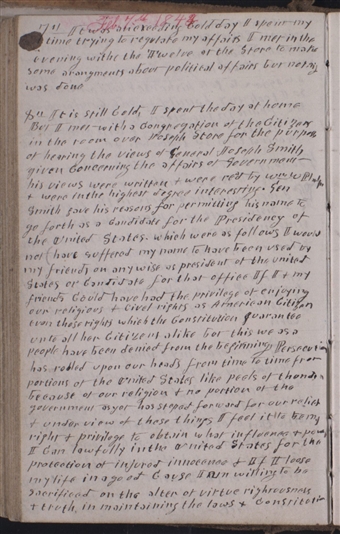 Feb 7th 1844
7th It was an exceding cold day I spent my
time trying to regulate my affairs I met in the
evening with the Twelve at the Store to make
some arangments about political affairs but nothing
was done
8th It is still cold, I spent the day at home
But I met with a Congregation of the Citizens
in the room over Joseph Store for the purpose
of hearing the views of General Joseph Smith
given concerning the affairs of Government
his views were written & were read by
& were in the highest degree interesting. Gen
Smith gave his reasons for permitting his name to
go forth as a candidate for the Presidency of
the United States. which were as follows I would
not have suffered my name to have been used by
my friends on any wise as president of the united
States or candidate for that office If I & my
friends could have had the privilege of enjoying
our religious & civel rights as American Citizen
even those rights which the Constitution guarantee
unto all her Citizens alike but this we as a
people have been denied from the beginning Persecution
has rolled upon our heads from time to time from
portions of the United States like peels of thunder
because of our religion & no portion of the
government as yet has steped forward for our relief
& under view of these things I feel it to be my
right & privilege to obtain what influence & power
I can lawfully in the United States for the
protection of injured innocence & If I loose
my life in a good cause I am willing to be
sacrificed on the alter of virtue righteousness
& truth, in maintaining the laws & Constitution